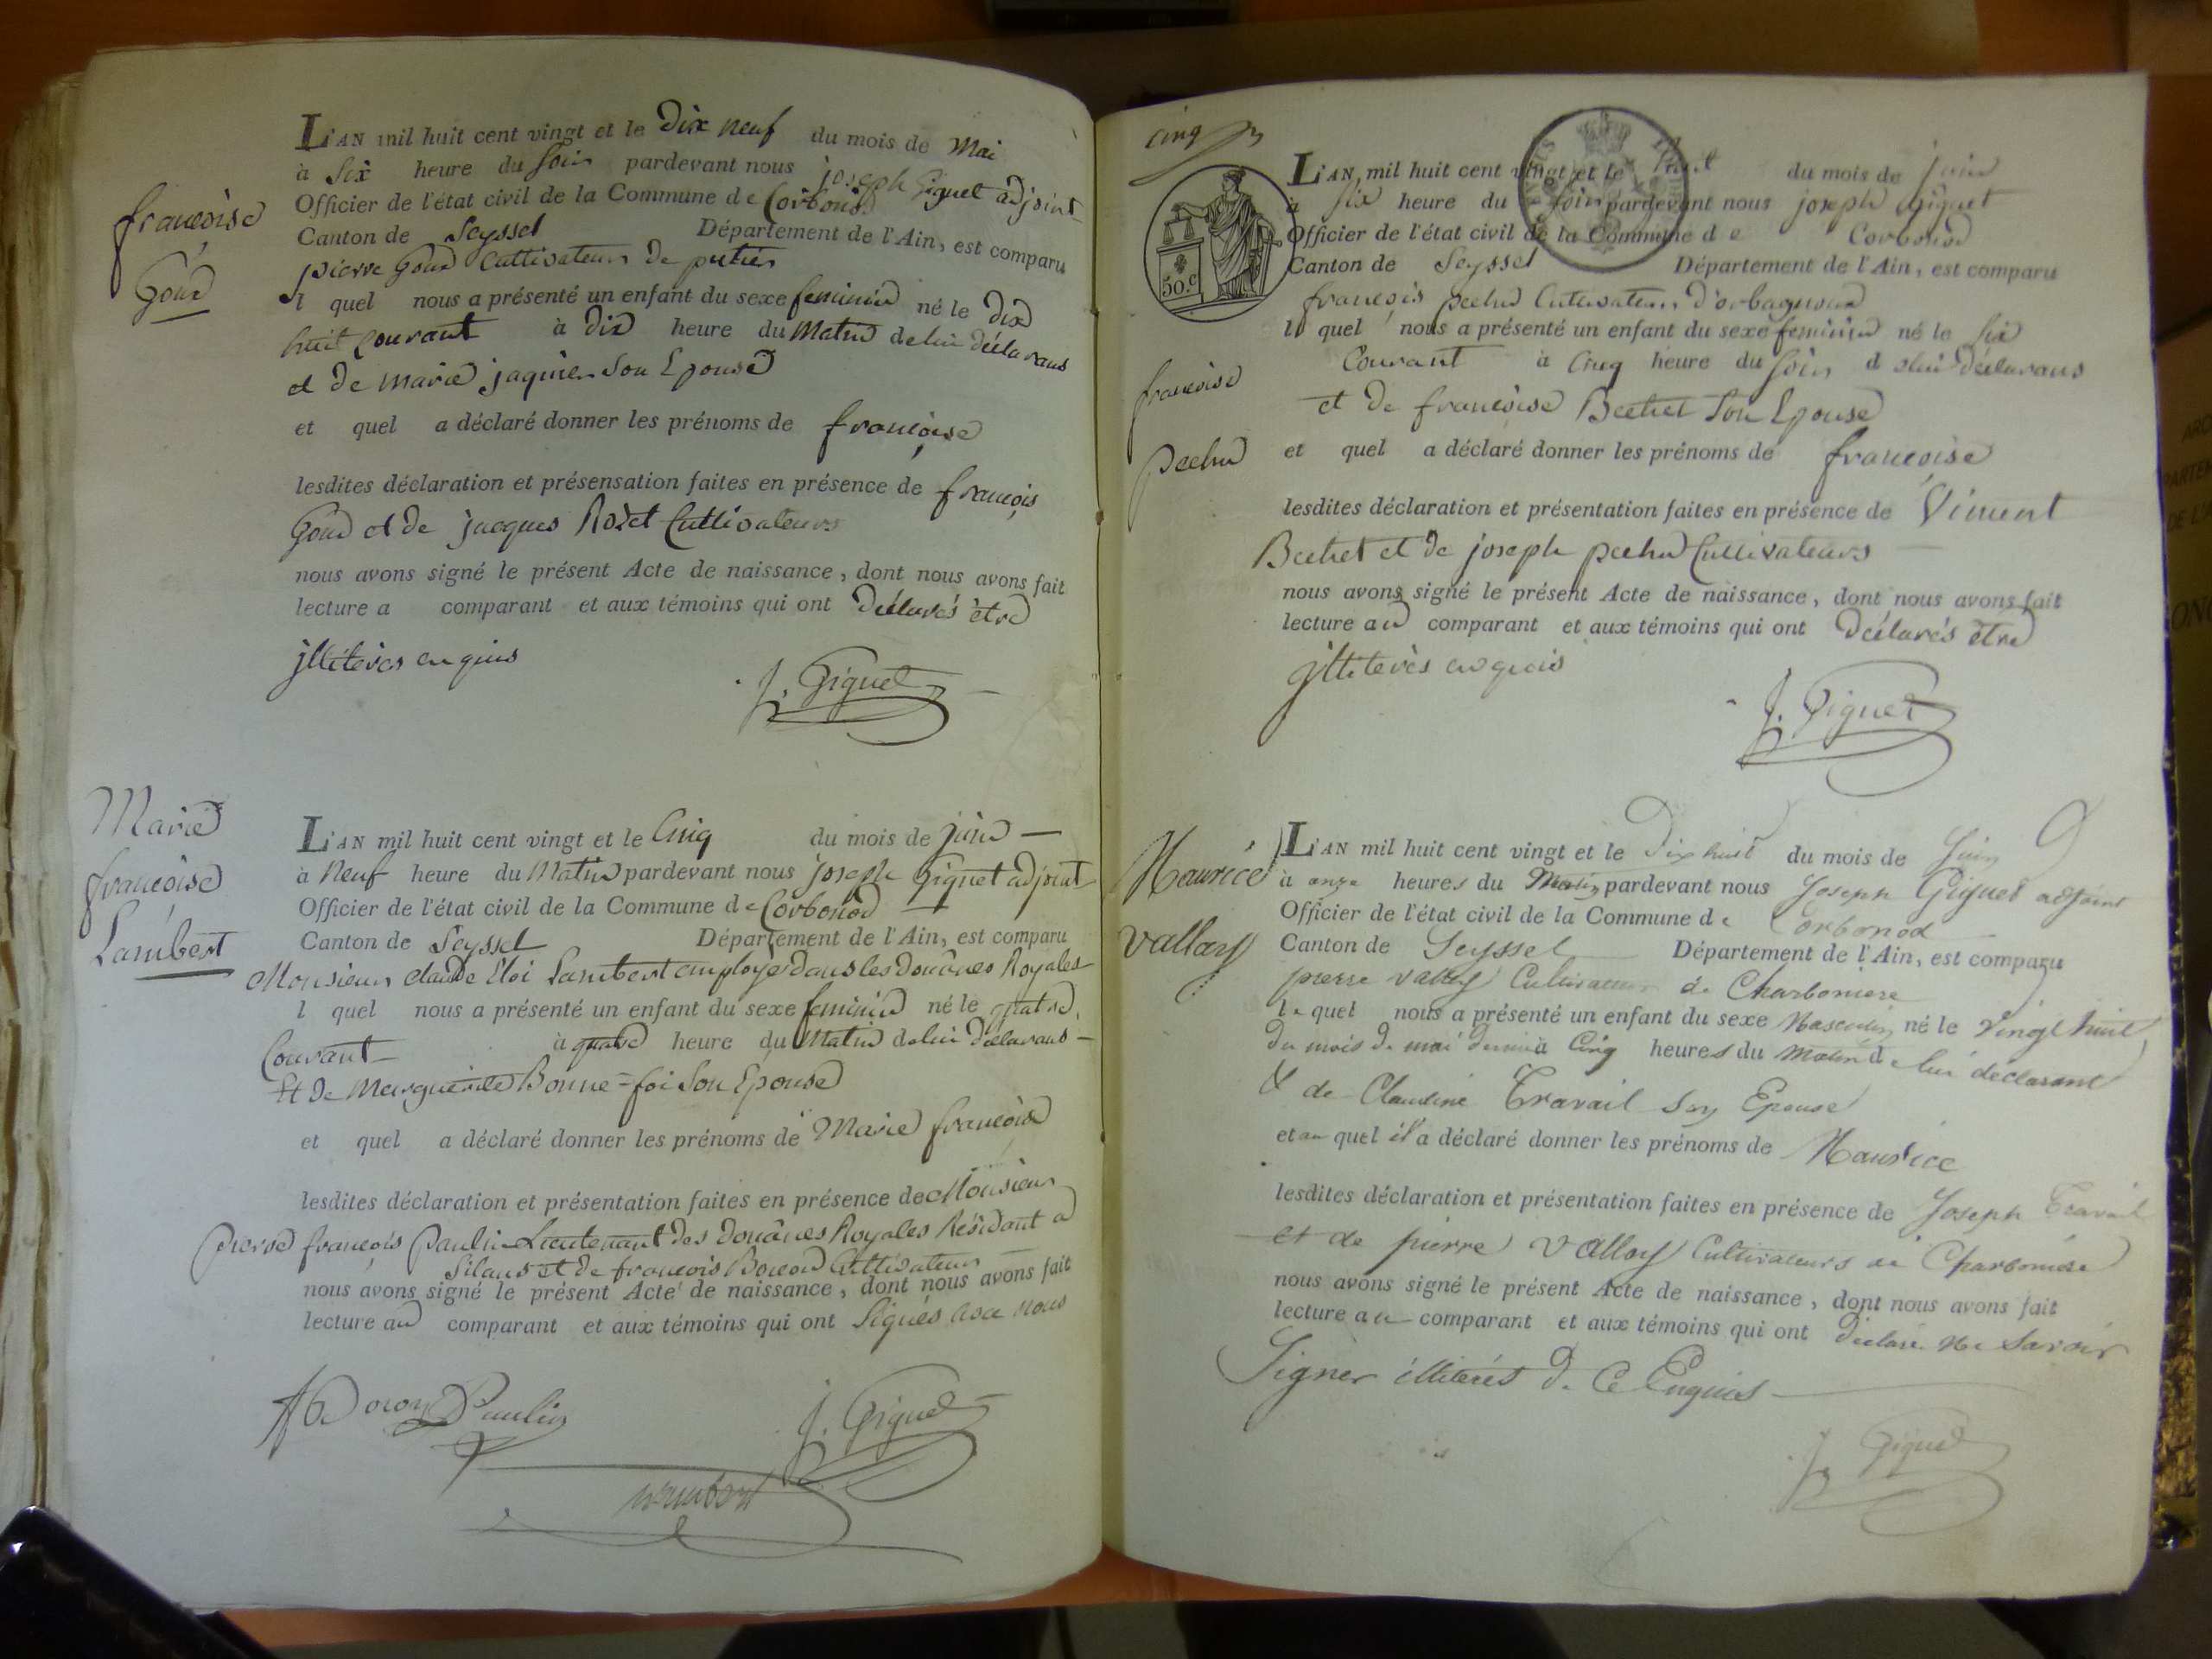 françoise
Goud
L'AN mil huit cent vingt et le Dix neuf du mois de Mai
à Six heure du Soir pardevant nous joseph Giguet adjoint
Officier de l'état civil de la Commune de Corbonod
Canton de Seyssel Département de l'Ain, est comparu
pierre Goud Cultivateur de
l quel nous a présenté un enfant du sexe feminin né le dix
huit Courant à Dix heure du Matin de lui déclarans
et de marie jaquier Son Epouse
et quel a déclaré donner les prénoms de françoise
lesdites déclaration et présensation faites en présence de françois
Goud et de jacques Rozet Cultivateurs
nous avons signé le présent Acte de naissance, dont nous avons fait
lecture a comparant et aux témoins qui ont déclarés être
jlliterés enquis
J. Giguet
Marie
françoise
Lambert
L'AN mil huit cent vingt et le Cinq du mois de juin
à Neuf heure du Matin pardevant nous joseph Giguet adjoint
Officier de l'état civil de la Commune de Corbonod
Canton de Seyssel Département de l'Ain, est comparu
Monsieur claude Eloi Lambert employé dans les Douânes Royales
l quel nous a présenté un enfant du sexe feminin né le quatre
Courant à quatre heure du Matin de lui déclarans
Et de Marguerite Bonne=foi Son Epouse
et quel a déclaré donner les prénoms de Marie françoise
lesdites déclaration et présentation faites en présence de Monsieur
pierre françois Paulin Lieutenant des Douânes Royales Résidant a
Silans et de françois Cultivateur
nous avons signé le présent Acte de naissance, dont nous avons fait
lecture au comparant et aux témoins qui ont Signés avec nous
Paulin
J. Giguet
Lambert
cinq
30.c
L'AN mil huit cent vingt et le huit du mois de juin
à Six heure du Soir pardevant nous joseph Giguet
Officier de l'état civil de la Commune de Corbonod
Canton de Seyssel Département de l'Ain, est comparu
françois pechu Cultivateur d'orbagnoux
françoise
pechu
le quel nous a présenté un enfant du sexe feminin né le Six
Courant à Cinq heure du Soir de lui déclarans
et de françoise Bechet Son Epouse
et quel a déclaré donner les prénoms de françoise
lesdites déclaration et présentation faites en présence de Vincent
Bechet et de joseph pechu Cultivateurs
nous avons signé le présent Acte de naissance, dont nous avons fait
lecture au comparant et aux témoins qui ont déclarés être
jlliterés enquis
J. Giguet
Maurice
Vallay
L'AN mil huit cent vingt et le Dix huit du mois de Juin
à onze heures du Matin pardevant nous Joseph Giguet adjoint
Officier de l'état civil de la Commune de Corbonod
Canton de Seyssel Département de l'Ain, est comparu
pierre Vallay Cultivateur de Charboniere
le quel nous a présenté un enfant du sexe Masculin né le vingt huit
du mois de mai dernier à Cinq heures du Matin de lui déclarant
& de Claudine Travail Son Epouse
et au quel il a déclaré donner les prénoms de Maurice
lesdites déclaration et présentation faites en présence de Joseph Travail
et de pierre Vallay Cultivateurs de Charboniere
nous avons signé le présent Acte de naissance, dont nous avons fait
lecture au comparant et aux témoins qui ont déclaré ne Savoir
Signer illiterés de Ce Enquis
J. Giguet